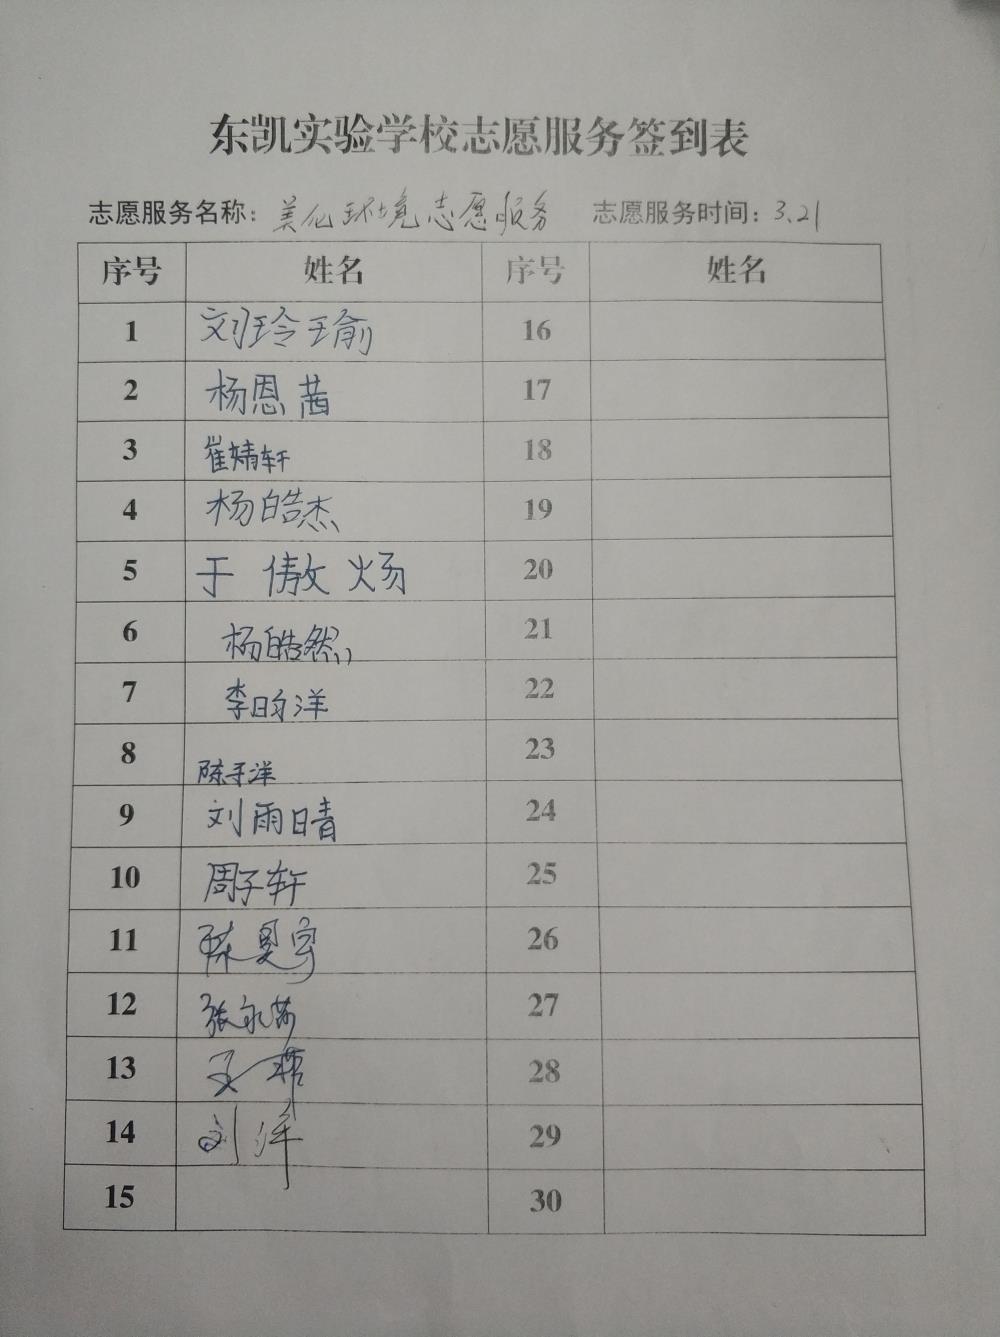 东凯实验学校志愿服务签到表
志愿服务名称：美化环境志愿服务 志愿服务时间：3.21
序号 姓名 序号 姓名
1 刘玲瑜 16
2 杨恩茜 17
3 崔婧轩 18
4 杨皓杰 19
5 于傲炀 20
6 杨皓然 21
7 李昀洋 22
8 陈于洋 23
9 刘雨晴 24
10 周子轩 25
11 陈昊宇 26
12 张永 27
13 王 28
14 刘洋 29
15 30